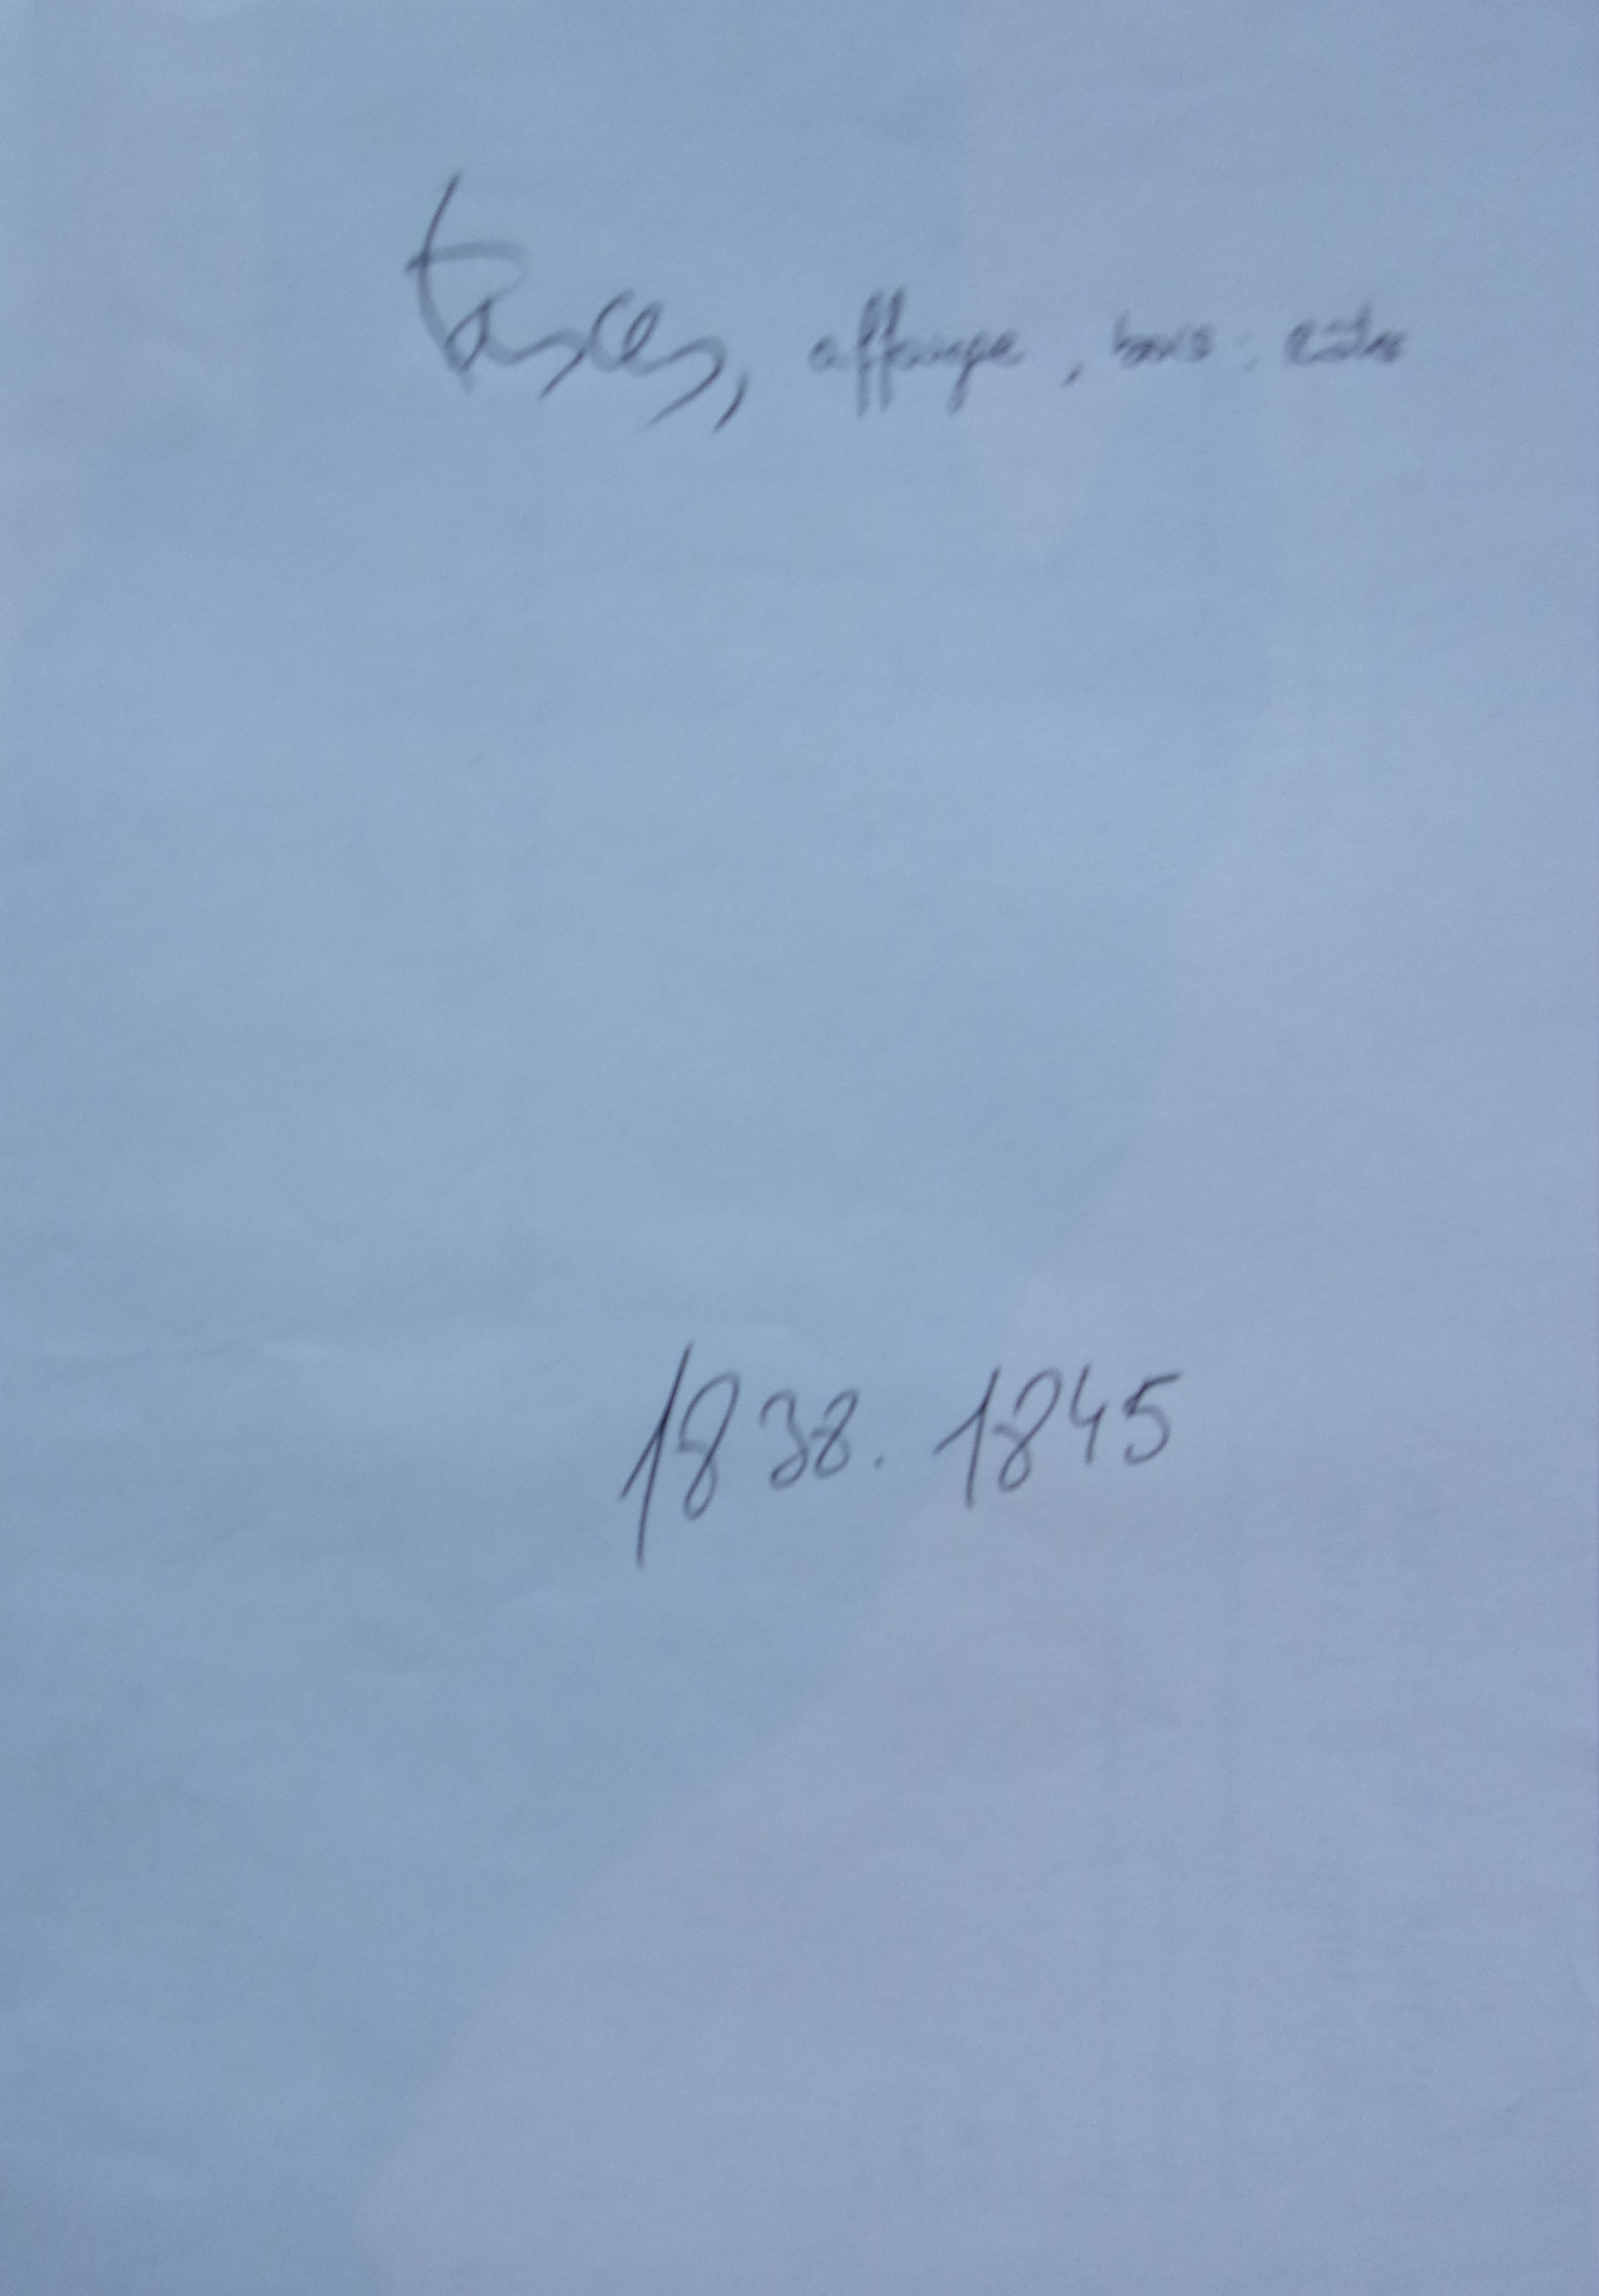 taxes, affouage, bois,
1838. 1845